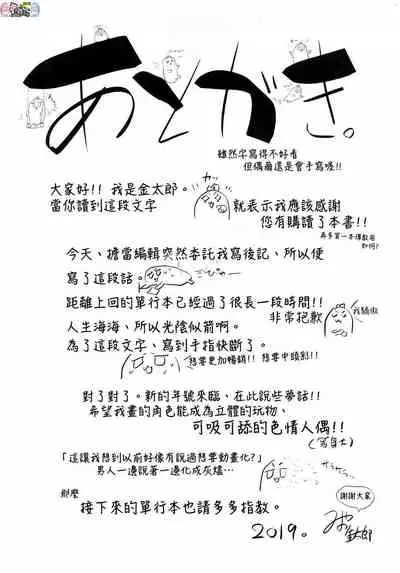 あとがき。
雖然字寫得不好看
但偶爾還是會手寫喔!!
大家好!! 我是金太郎。
當你讀到這段文字
カッ
就表示我應該感謝
您有購讀了本書!!
再多買一本傳教用
如何?
今天、擔當編輯突然委託我寫後記、所以便
寫了這段話。
距離上回的單行本已經過了很長一段時間!!
非常抱歉
我驕傲
人生海海、所以光陰似箭啊。
為了這段文字、寫到手指快斷了。
想要更加暢銷!! 想要中頭彩!!
對了對了。新的年號來臨、在此說些夢話!!
希望我畫的角色能成為立體的玩物、
可吸可舔的色情人偶!!
「這讓我想到以前好像有說過想要動畫化?」
男人一邊說著一邊化成灰燼…
那麼
接下來的單行本也請多多指教。
謝謝大家
2019。
金太郎